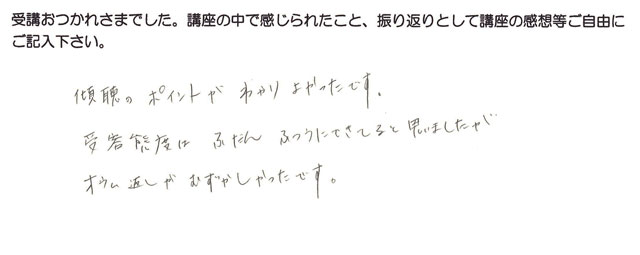 受講おつかれさまでした。講座の中で感じられたこと、振り返りとして講座の感想等ご自由に
ご記入下さい。
傾聴のポイントが わかり よかったです。
受容態度は ふだん ふつうにできてると思いましたが
オウム返しが むずかしかったです。